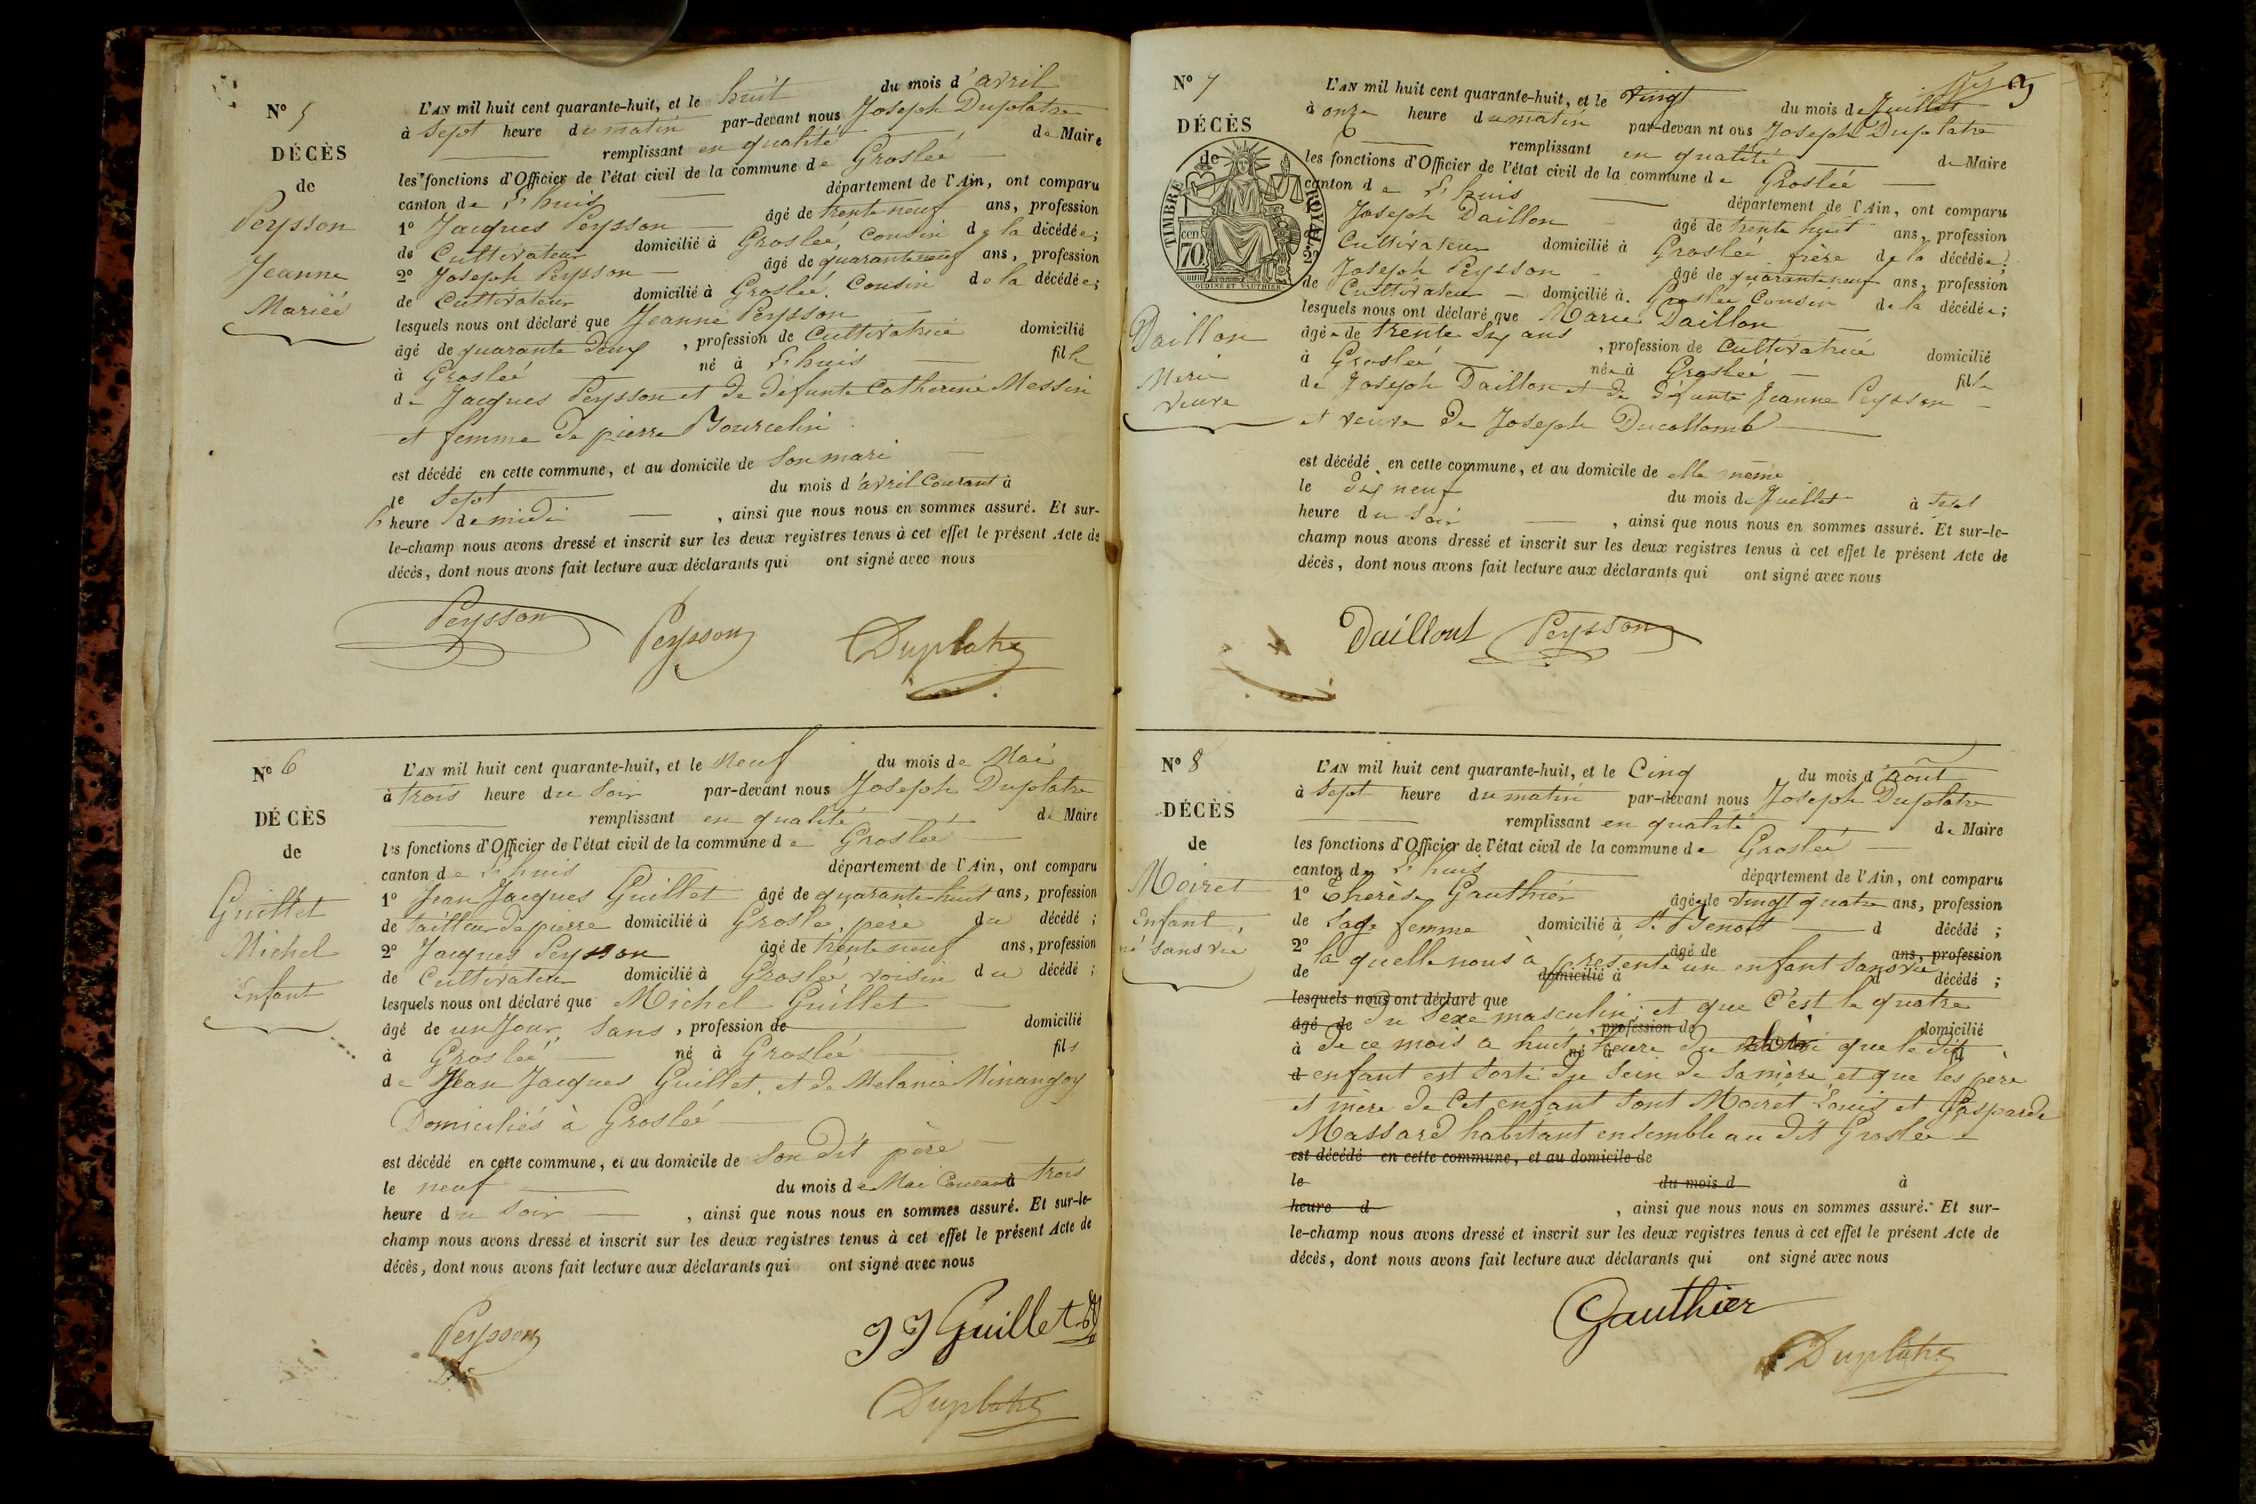 N° 5
DÉCÈS
de
Peysson
Jeanne
Mariée
L'AN mil huit cent quarante-huit, et le huit du mois d'avril
à sept heure du matin par-devant nous Joseph Duplatre
remplissant en qualité de Maire
les fonctions d'Officier de l'état civil de la commune de Groslée
canton de L'huis département de l'Ain, ont comparu
1° Jacques Peysson âgé de trente neuf ans, profession
de Cultivateur domicilié à Groslée, Cousin de la décédée;
2° Joseph Peysson âgé de quarante neuf ans, profession
de Cultivateur domicilié à Groslée. Cousin de la décédée;
lesquels nous ont déclaré que Jeanne Peysson
âgé de quarante deux, profession de Cultivatrice domicilié
à Groslée né à L'huis fille
de Jacques Peysson et de défunte Catherine Messin
et femme de pierre Bourcelin
est décédé en cette commune, et au domicile de Son mari
le Sept du mois d'avril Courant à
heure de midi, ainsi que nous nous en sommes assuré. Et sur-
le-champ nous avons dressé et inscrit sur les deux registres tenus à cet effet le présent Acte de
décès, dont nous avons fait lecture aux déclarants qui ont signé avec nous
Peysson Peysson Duplatre
N° 6
DÉCÈS
de
Guillet
Michel
Enfant
L'AN mil huit cent quarante-huit, et le neuf du mois de Mai
à trois heure du Soir par-devant nous Joseph Duplatre
remplissant en qualité de Maire
les fonctions d'Officier de l'état civil de la commune de Groslée
canton de L'huis département de l'Ain, ont comparu
1° Jean Jacques Guillet âgé de quarante huit ans, profession
de tailleur de pierre domicilié à Groslé, père du décédé;
2° Jacques Peysson âgé de trente neuf ans, profession
de Cultivateur domicilié à Groslée voisin du décédé;
lesquels nous ont déclaré que Michel Guillet
âgé de un Jour, Sans, profession de domicilié
à Groslée né à Groslée fils
de Jean Jacques Guillet, et de Melanie Minangoy
Domiciliés à Groslée
est décédé en cette commune, et au domicile de Son dit père
le neuf du mois de Mai Courant à trois
heure du Soir, ainsi que nous nous en sommes assuré. Et sur-le-
champ nous avons dressé et inscrit sur les deux registres tenus à cet effet le présent Acte de
décès, dont nous avons fait lecture aux déclarants qui ont signé avec nous
Peysson JJ Guillet
Duplatre
N° 7
DÉCÈS
de
TIMBRE ROYAL
70 cen
OUDINE ET VAUTHIER
Daillon
Merie
Veuve
L'AN mil huit cent quarante-huit, et le vingt du mois de Juillet
à onze heure du matin par-devan nt ous Joseph Duplatre
remplissant en qualité de Maire
les fonctions d'Officier de l'état civil de la commune de Groslée
canton de L'huis département de l'Ain, ont comparu
Joseph Daillon âgé de trente huit ans, profession
Cultivateur domicilié à Groslée frère de la décédée;
2° Joseph Peysson âgé de quarante neuf ans, profession
de Cultivateur domicilié à Groslée Cousin de la décédée;
lesquels nous ont déclaré que Marie Daillon
âgée de trente Six ans, profession de Cultivatrice domicilié
à Groslée née à Groslée fille
de Joseph Daillon et de défunte Jeanne Peysson
et veuve de Joseph Ducollomb
est décédé en cette commune, et au domicile de elle même
le dix neuf du mois de Juillet à Sept
heure du Soir, ainsi que nous nous en sommes assuré. Et sur-le-
champ nous avons dressé et inscrit sur les deux registres tenus à cet effet le présent Acte de
décès, dont nous avons fait lecture aux déclarants qui ont signé avec nous
Daillont Peysson
N° 8
DÉCÈS
de
Moiret
Enfant,
né sans vie
L'AN mil huit cent quarante-huit, et le Cinq du mois d'Août
à Sept heure du matin par-devant nous Joseph Duplatre
remplissant en qualité de Maire
les fonctions d'Officier de l'état civil de la commune de Groslée
canton de L'huis département de l'Ain, ont comparu
1° Thérèse Gauthier âgée de vingt quatre ans, profession
de Sage femme domicilié à St Benoit d décédé;
2° âgé de ans, profession
la quelle nous à présenté un enfant Sans vie
de domicilié à d décédé;
lesquels nous ont déclaré que
du Sexe masculin; et que C'est le quatre
âgé de, profession de domicilié
à de ce mois a huit heure du que le dit
né à fil
d enfant est Sorti du Sein de Sa mère et que les père
et mère de Cet enfant Sont Moiret Louis et Gasparde
Massard habitant ensemble au dit Groslée
est décédé en cette commune, et au domicile de
le du mois d à
heure d, ainsi que nous nous en sommes assuré. Et sur-
le-champ nous avons dressé et inscrit sur les deux registres tenus à cet effet le présent Acte de
décès, dont nous avons fait lecture aux déclarants qui ont signé avec nous
Gauthier
Duplatre